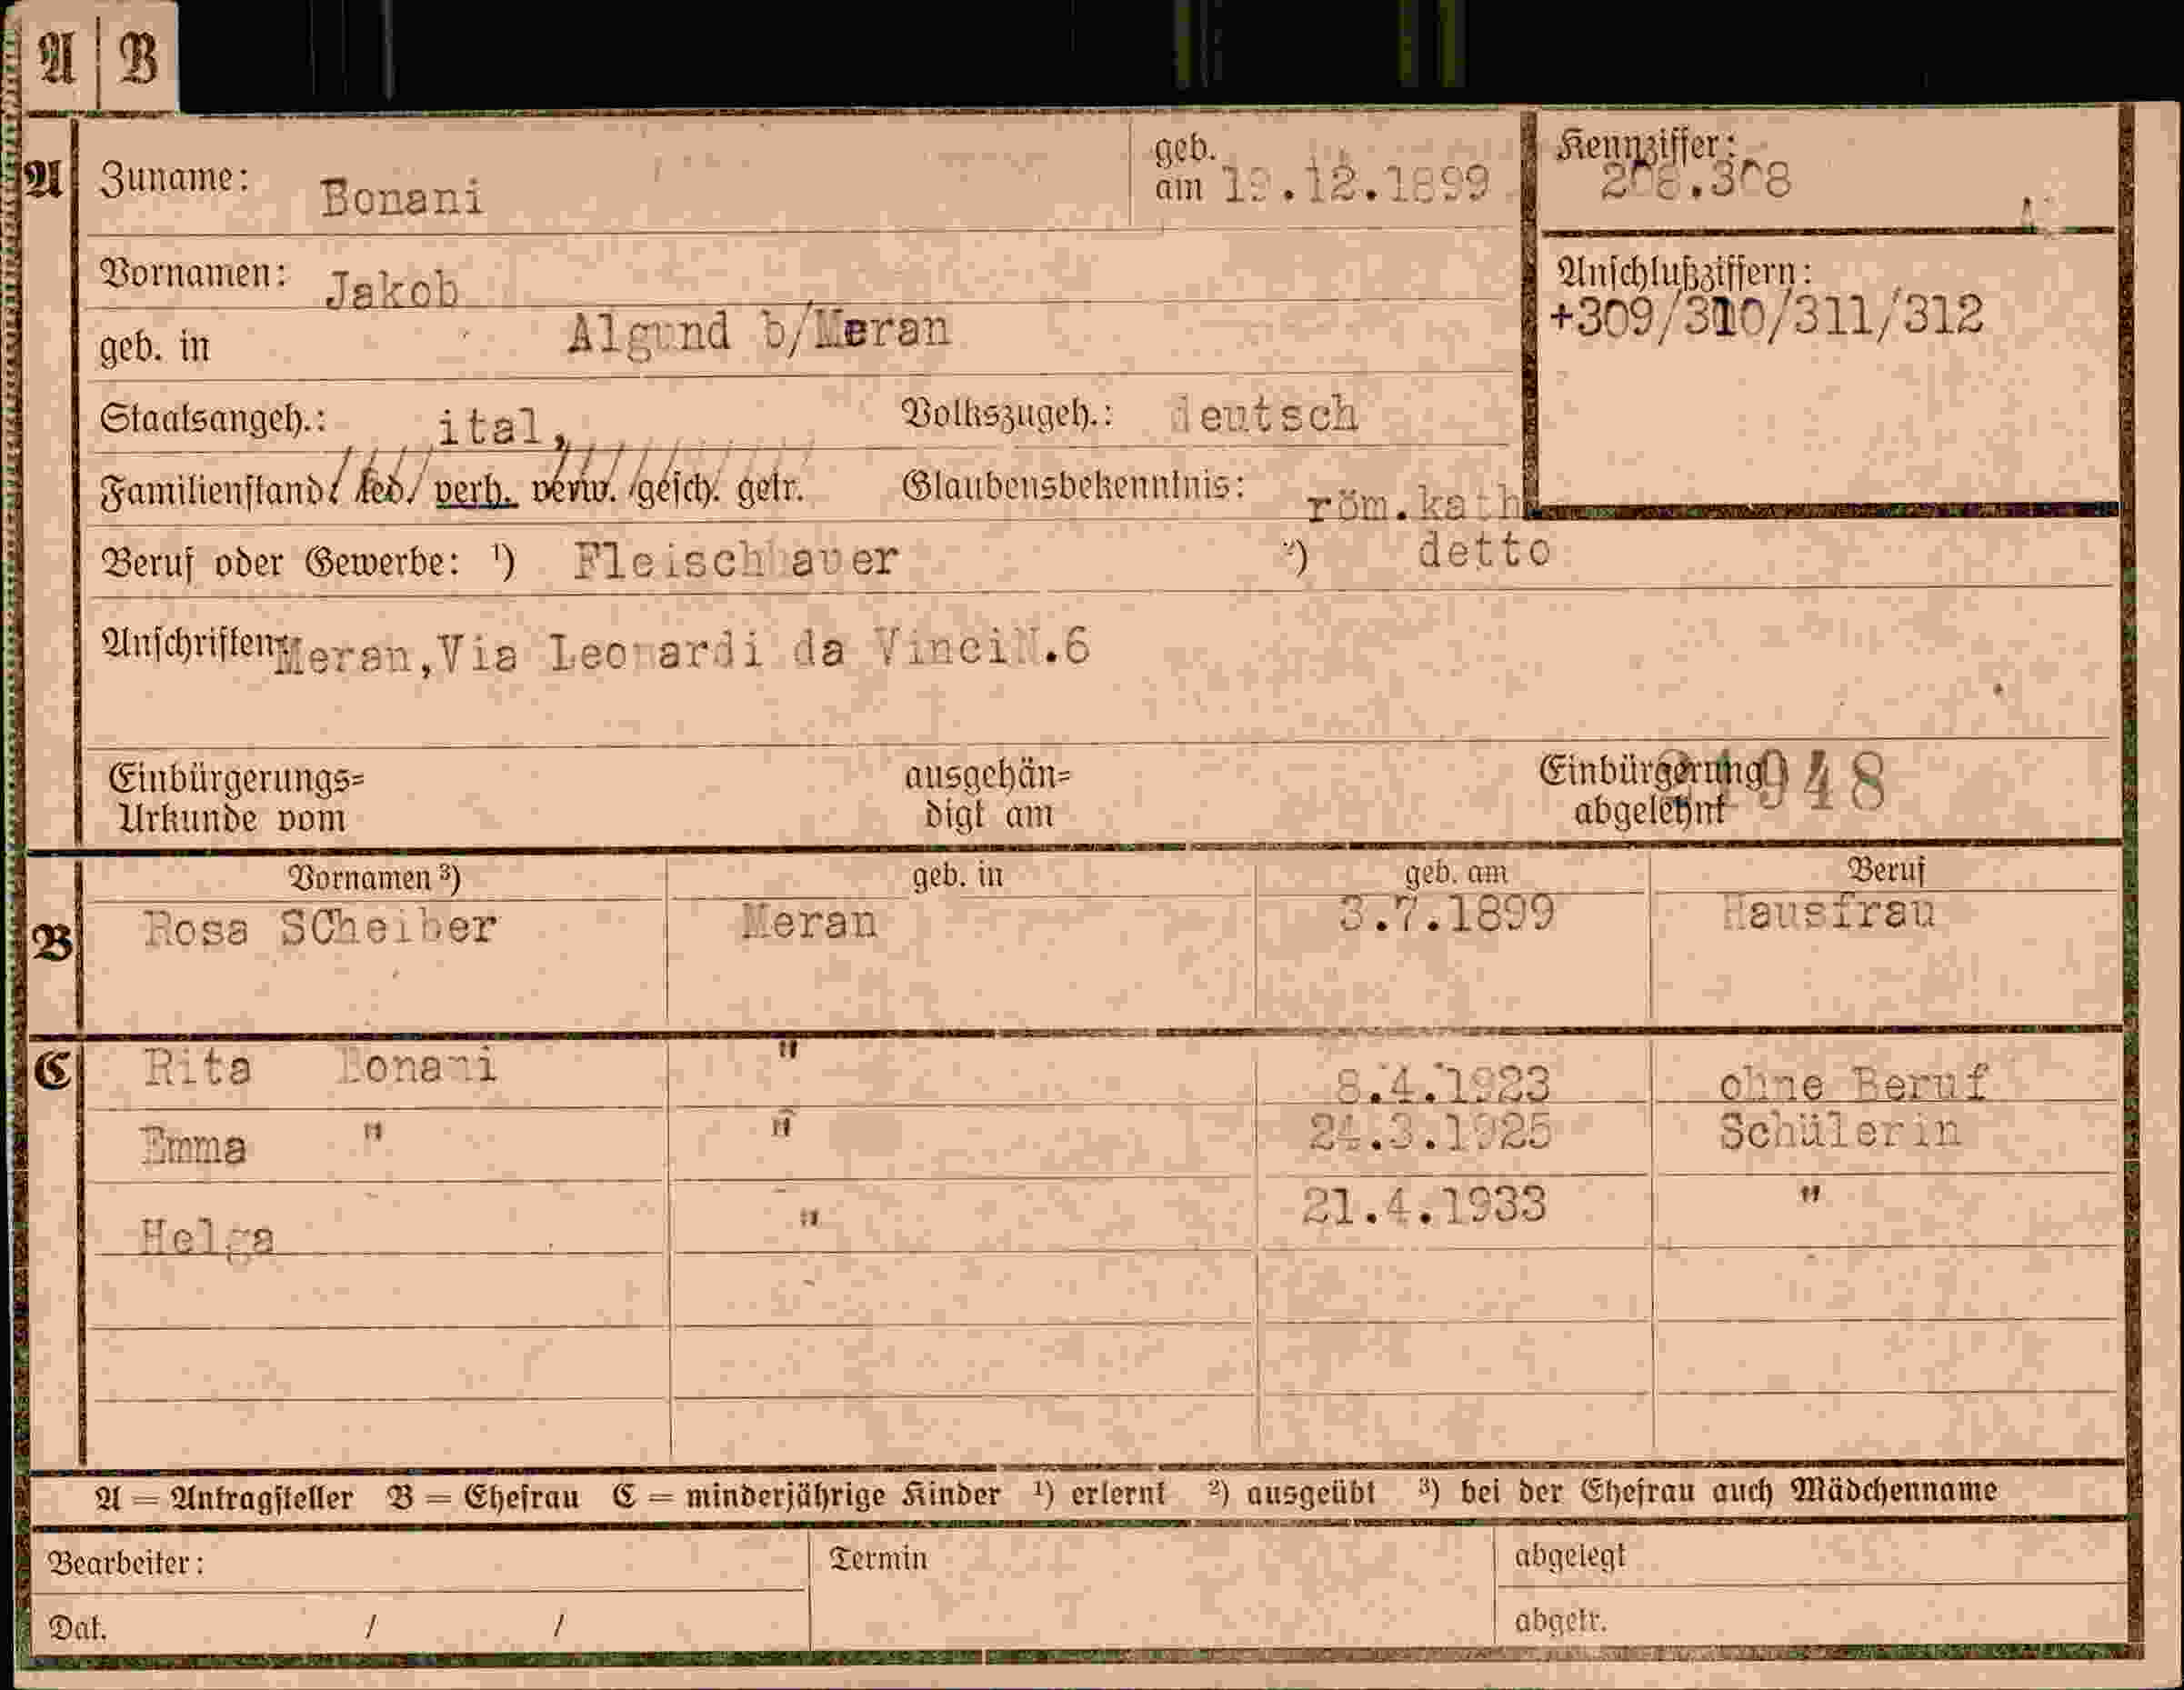 A | B
A
Zuname: Bonani
geb. am 19.12.1899
Kennziffer: 208.308
Vornamen: Jakob
Anschlußziffern:
+309/310/311/312
geb. in Algund b/Meran
Staatsangeh.: ital, Volkszugeh.: deutsch
Familienstand: led. verh. verw. gesch. getr. Glaubensbekenntnis: röm.kath
Beruf oder Gewerbe: ¹) Fleischhauer ²) detto
Anschriften: Meran,Via Leonardi da VinciN.6
Einbürgerungs=
Urkunde vom
ausgehän=
digt am
Einbürgerung
abgelehnt
B
Vornamen ³) geb. in geb. am Beruf
Rosa SCheiber Meran 3.7.1899 Hausfrau
C
Rita Bonani " 8.4.1923 ohne Beruf
Emma " " 24.3.1925 Schülerin
Helga " 21.4.1933 "
A = Antragsteller B = Ehefrau C = minderjährige Kinder ¹) erlernt ²) ausgeübt ³) bei der Ehefrau auch Mädchenname
Bearbeiter: Termin abgelegt
Dat. / / abgetr.